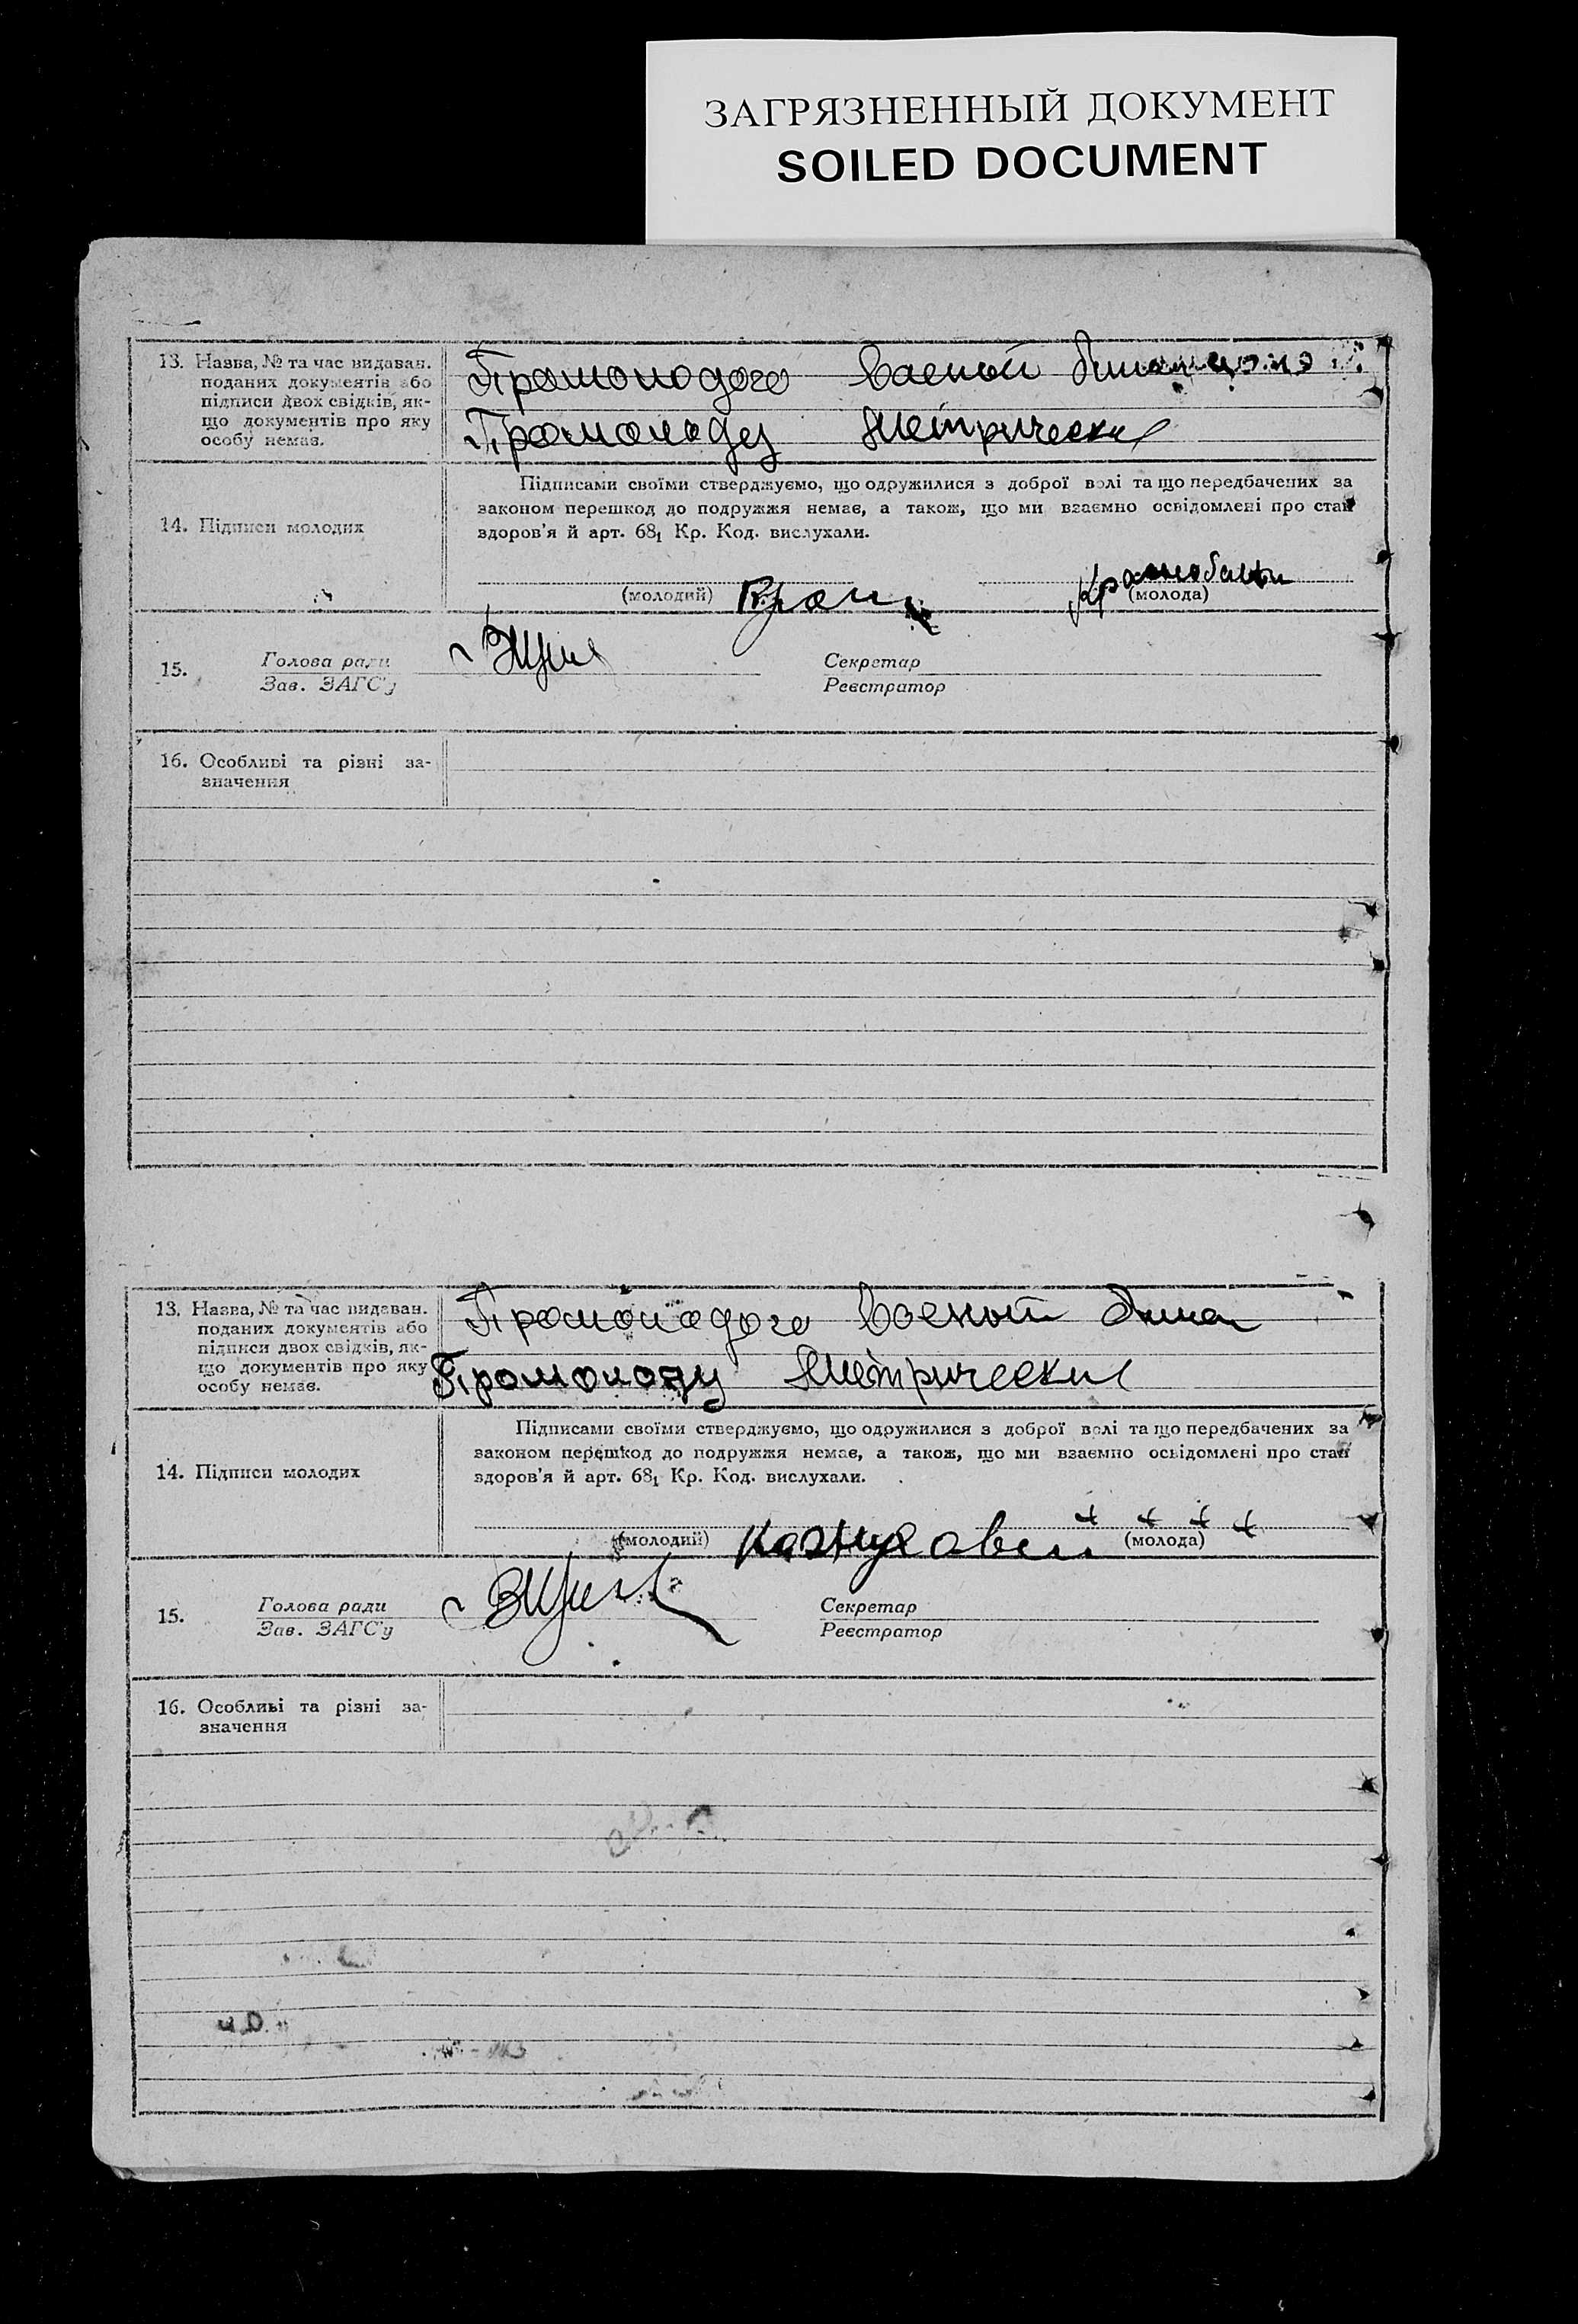 ЗАГРЯЗНЕННЫЙ ДОКУМЕНТ
SOILED DOCUMENT
13. Назва, № та час видаван.
поданих документів або
підписи двох свідків, як-
що документів про яку
особу немає.
Про молодого Военой
Про молоду Метрические
14. Підписи молодих
Підписами своїми стверджуємо, що одружилися з доброї волі та що передбачених за
законом перешкод до подружжя немає, а також, що ми взаємно освідомлені про стан
здоров'я й арт. 68₁ Кр. Код. вислухали.
(молодий) (молода)
15. Голова ради Секретар
Зав. ЗАГС'у Реєстратор
16. Особливі та різні за-
значення
13. Назва, № та час видаван.
поданих документів або
підписи двох свідків, як-
що документів про яку
особу немає.
Про молодого Военой
Про молоду Метрические
14. Підписи молодих
Підписами своїми стверджуємо, що одружилися з доброї волі та що передбачених за
законом перешкод до подружжя немає, а також, що ми взаємно освідомлені про стан
здоров'я й арт. 68₁ Кр. Код. вислухали.
++++
(молодий) (молода)
15. Голова ради Секретар
Зав. ЗАГС'у Реєстратор
16. Особливі та різні за-
значення